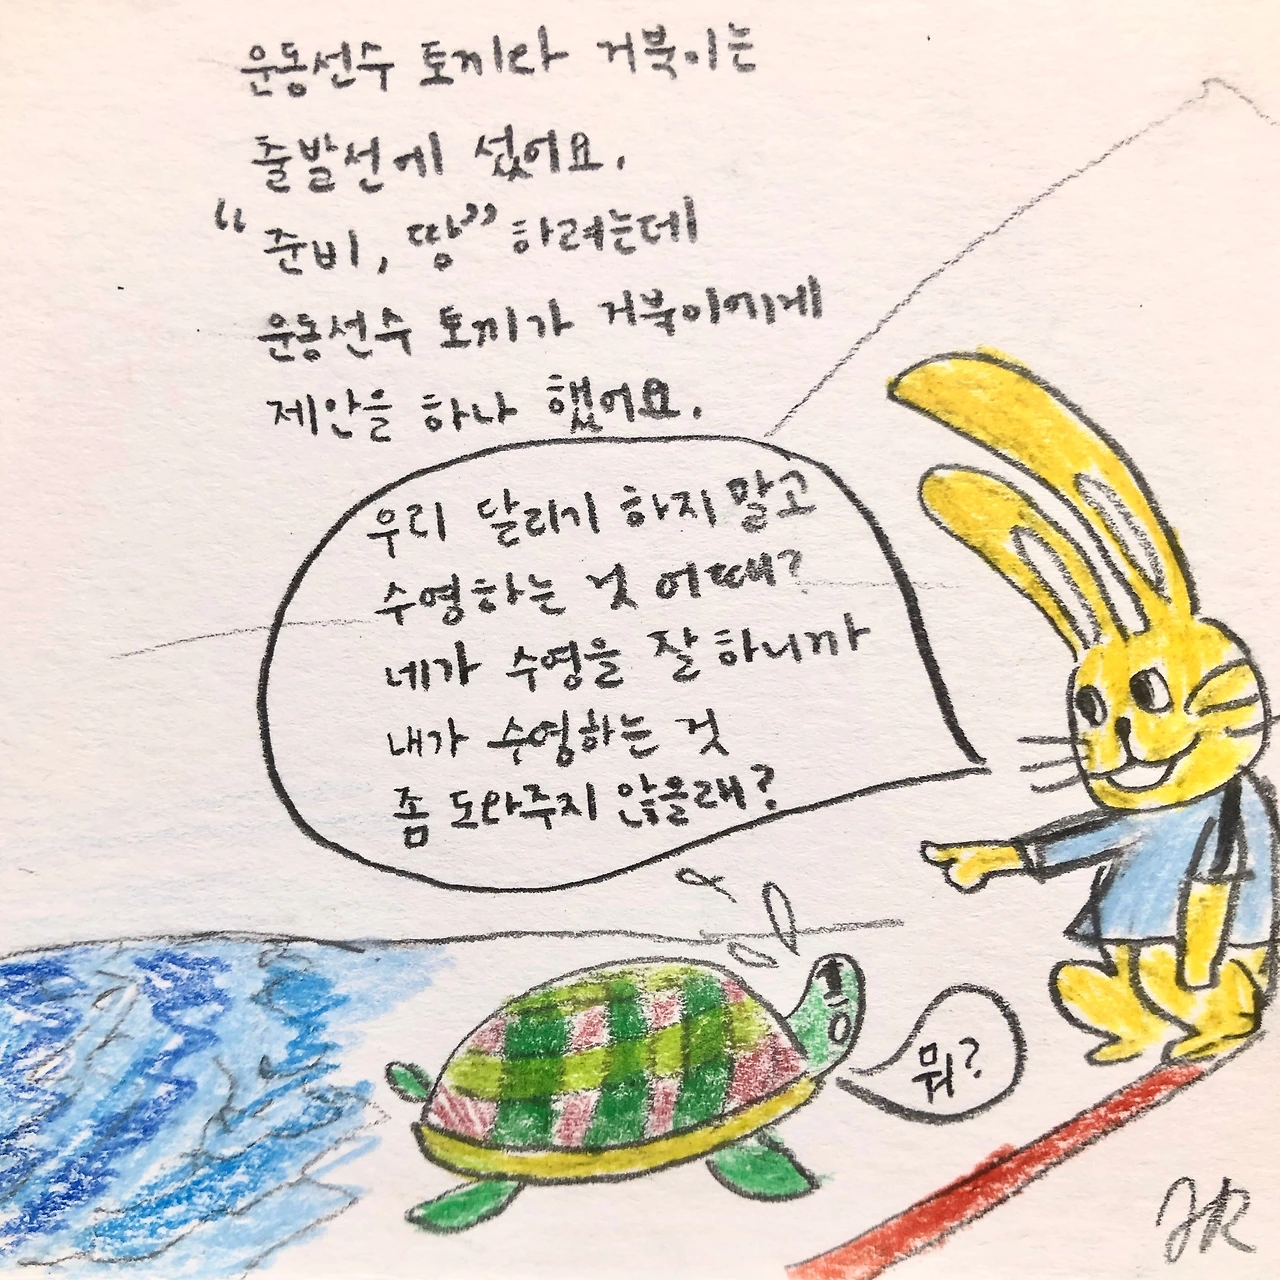 운동선수 토끼라 거북이는
출발선에 섰어요.
“준비, 땅” 하려는데
운동선수 토끼가 거북이에게
제안을 하나 했어요.
우리 달리기 하지 말고
수영하는 것 어때?
네가 수영을 잘 하니까
내가 수영하는 것
좀 도와주지 않을래?
뭐?
JR